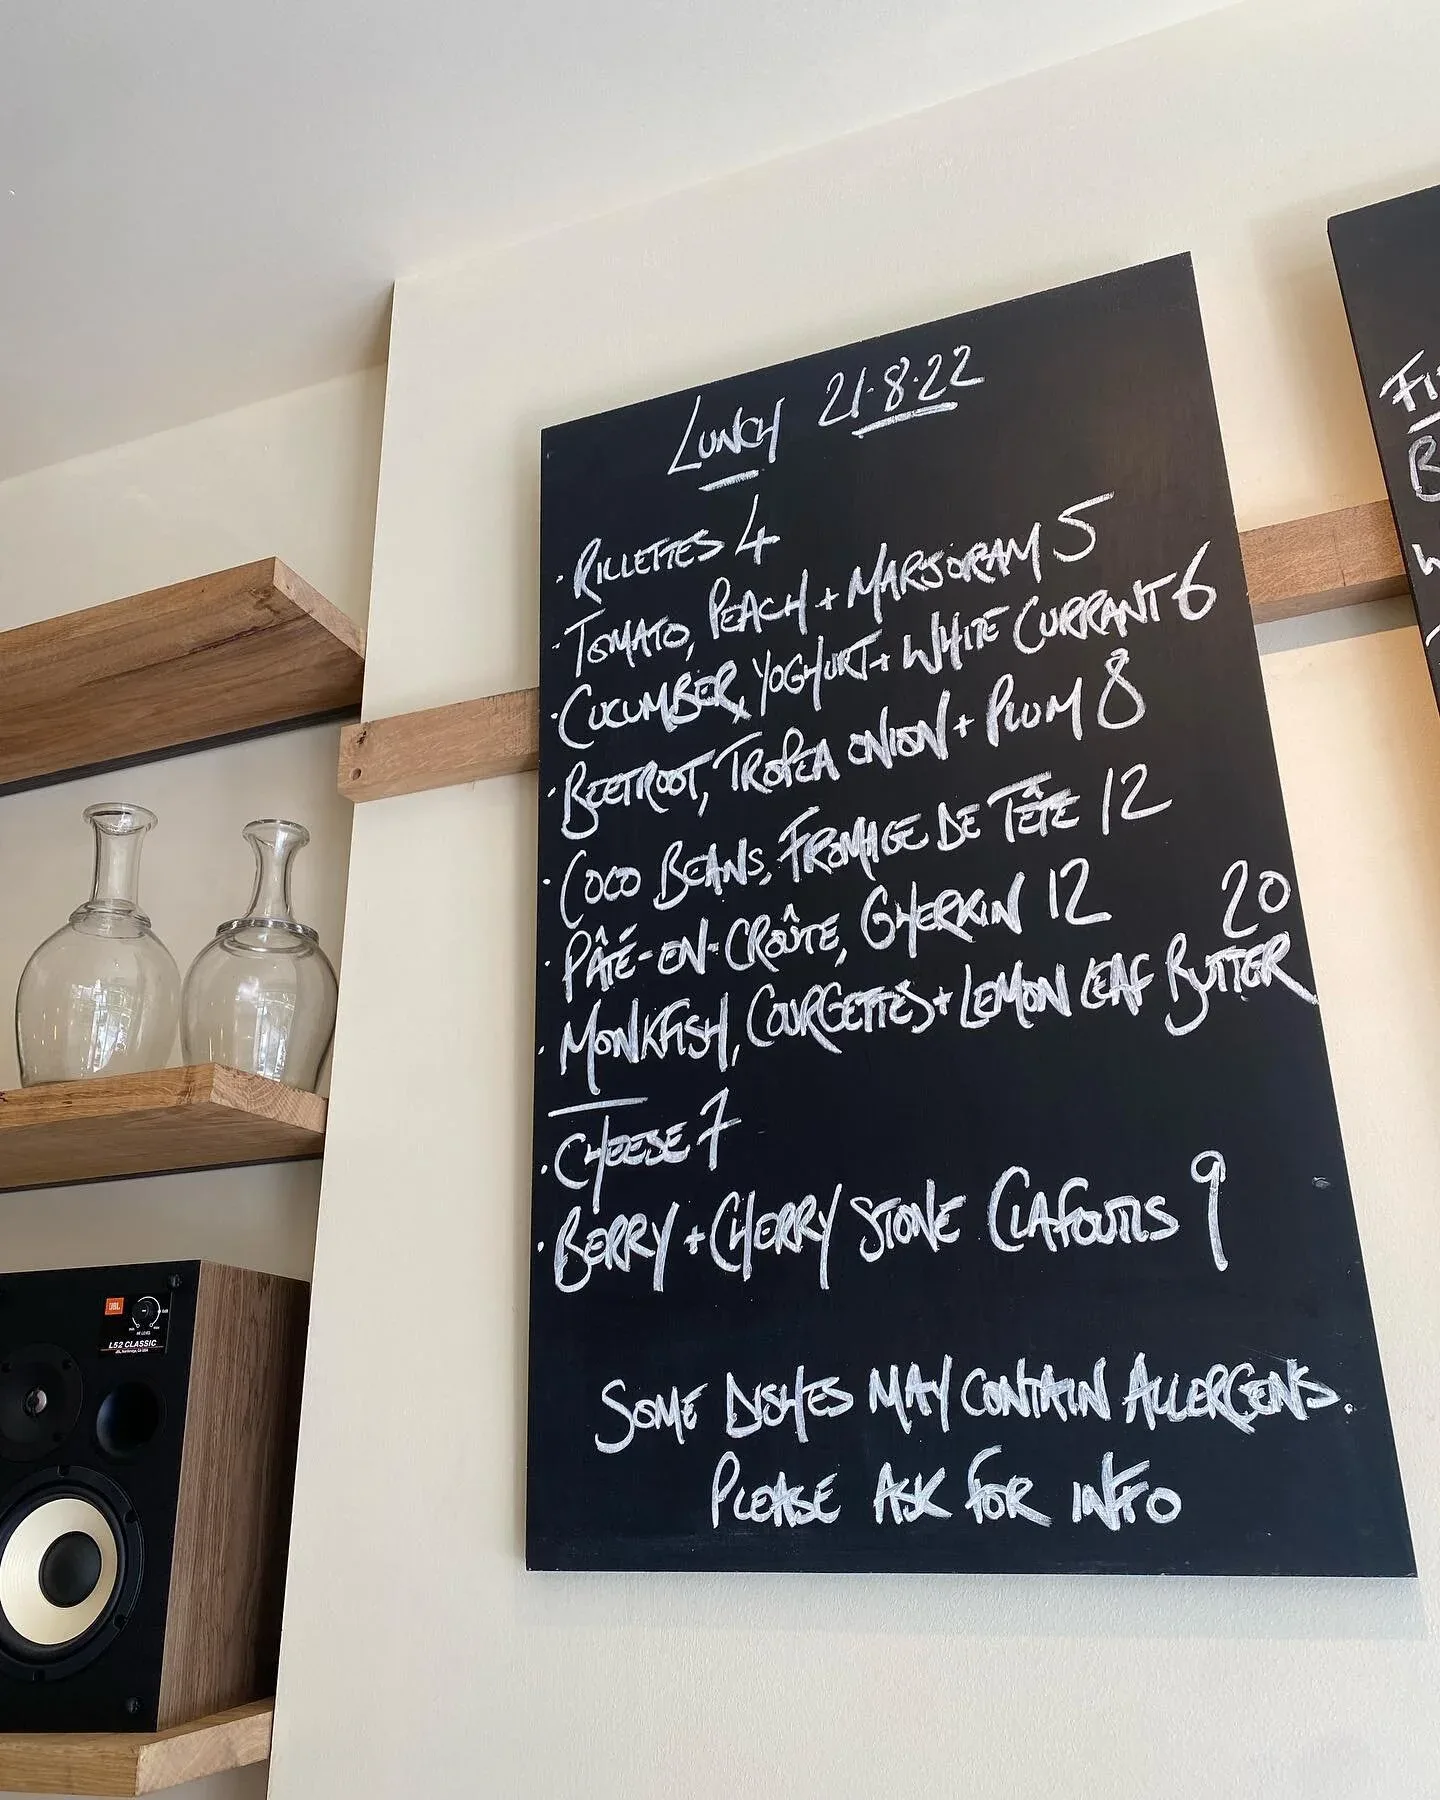 LUNCH 21.8.22
· RILLETTES 4
· TOMATO, PEACH + MARJORAM 5
· CUCUMBER, YOGHURT + WHITE CURRANT 6
· BEETROOT, TROPEA ONION + PLUM 8
· COCO BEANS, FROMAGE DE TÊTE 12
· PÂTÉ-EN-CROÛTE, GHERKIN 12
· MONKFISH, COURGETTES + LEMON LEAF BUTTER 20
· CHEESE 7
· BERRY + CHERRY STONE CLAFOUTIS 9
SOME DISHES MAY CONTAIN ALLERGENS.
PLEASE ASK FOR INFO
JBL
L52 CLASSIC